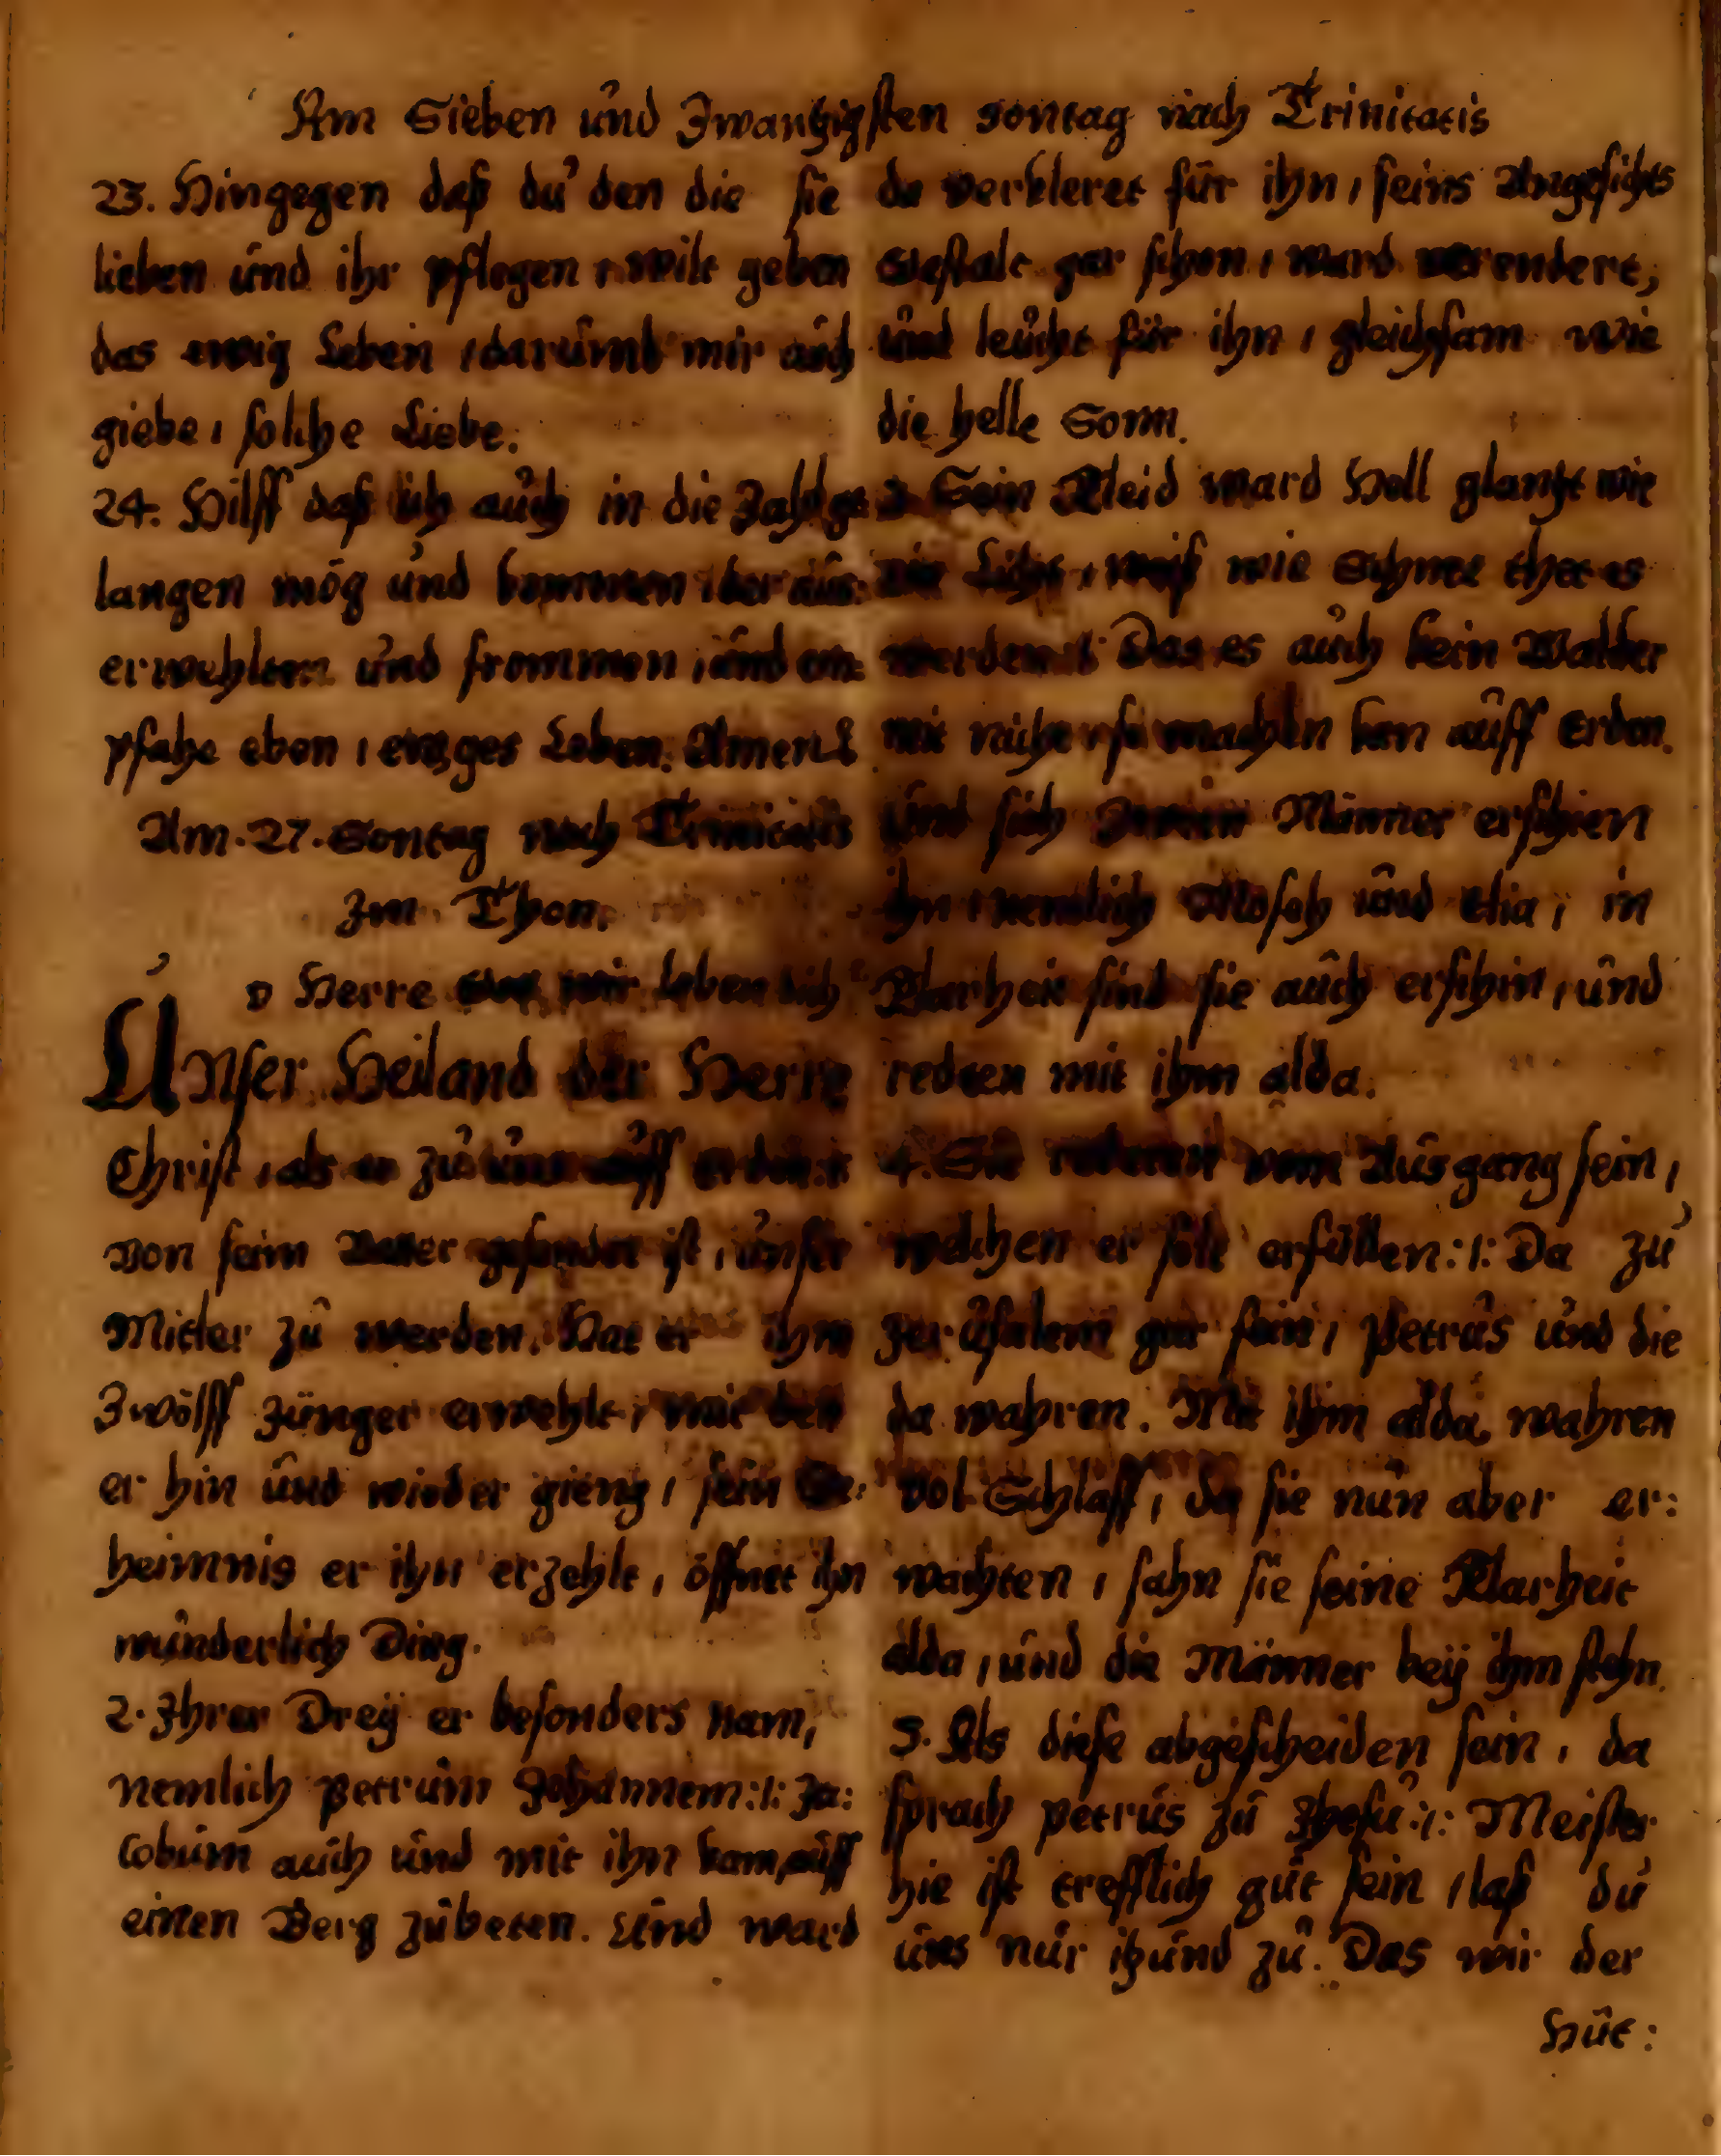 Am Sieben und Zwantzigsten sontag nach Trinitatis
23. Hingegen daß du den die sie
lieben und ihr pflegen, wilt geben
das ewig Leben, darumb mir auch
giebe, solche Liebe.
24. Hilff daß ich auch in die Zahl ge
langen mög und kommen, der aus:
erwehlten und frommen, und em:
pfahe eben, ewges Leben. Amen
Am. 27. Sontag nach Trinitatis
Im Thon.
O Herre Gott wir loben dich
Unser Heiland der Herre
Christ, als er zu uns auff erden:
von seim Vater gesendet ist, unser
Mitler zu werden. Hat er ihm
Zwölff Jünger erwehlt, mit den
er hin und wieder gieng, sein Ge:
heimnis er ihn erzehlt, öffnet ihn
wunderlich Ding.
2. Ihrer Dreÿ er besonders nam,
nemlich Petrum Johannem:/: Ja:
cobum auch und mit ihn kam, auff
einen Berg zubeten. Und ward
da verkleret für ihn, seins Angesichts
Gestalt gar schon, ward verendert,
und leucht für ihn, gleichsam wie
die helle Sonn.
3. Sein Kleid ward Hell glantzt wie
Licht, weiß wie Schnee thet es
werden Das es auch kein Walker
mit nicht, so machen kan auff Erden.
Und sich Männer erschien
ihn, nemlich Moseh und Elia, in
Klarheit sind sie auch erschin, und
redten mit ihm alda.
4. Sie redeten vom Ausgang sein,
welchen er solt erfüllen:/: Da zu
Jerusalem gar fein, Petrus und die
da wahren. Mit ihm alda wahren
vol Schlaff, da sie nun aber er:
wachten, sahn sie seine Klarheit
alda, und die Männer beÿ ihm stehn.
5. Als diese abgescheiden sein, da
sprach Petrus zu Jhesu:/: Meister
hie ist trefflich gut sein, laß du
uns nur itzund zu. Das wir der
Hüt: